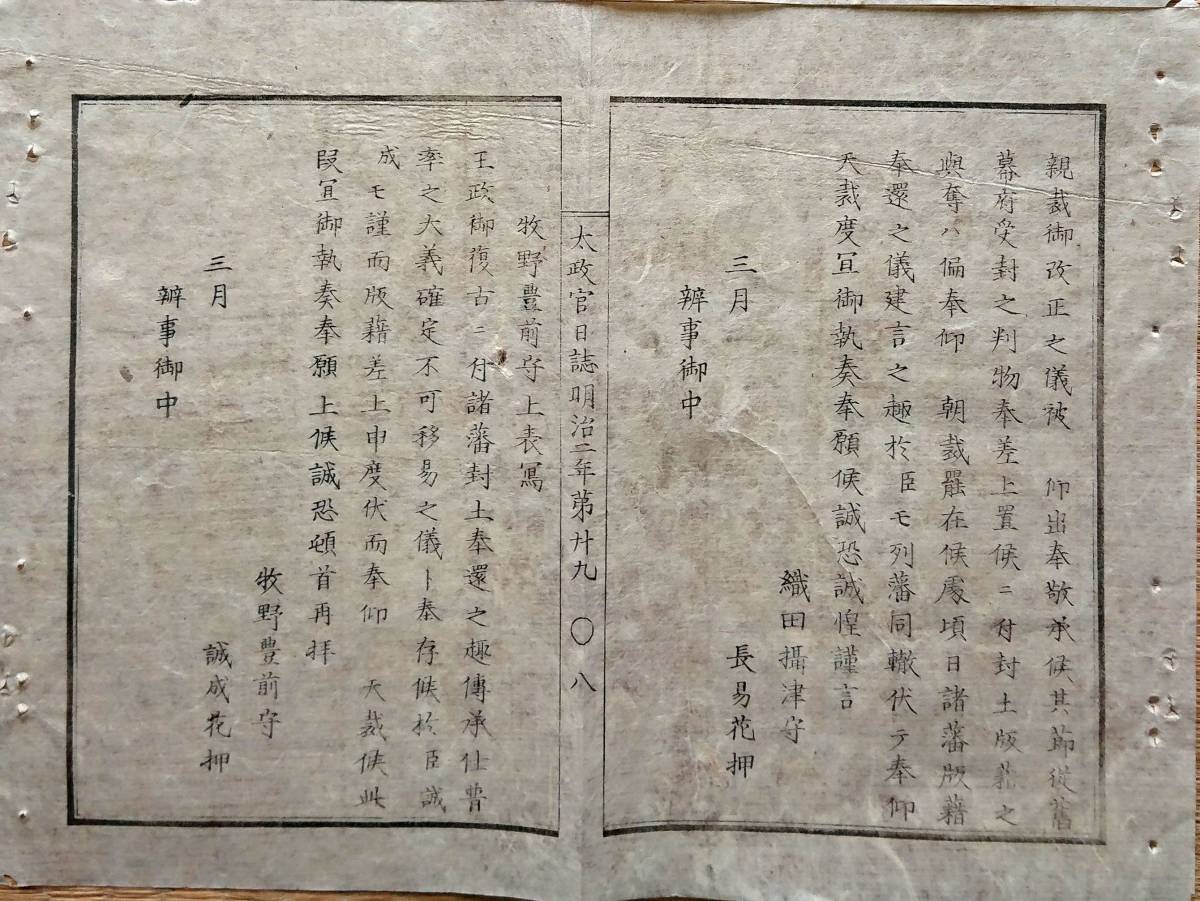 親裁御改正之儀被　仰出奉敬承候其節從舊
幕府受封之判物奉差上置候ニ付封土版籍之
與奪ハ偏奉仰　朝裁罷在候處頃日諸藩版藉
奉還之儀建言之趣於臣モ列藩同轍伏テ奉仰
天裁度冝御執奏奉願候誠恐誠惶謹言
織田攝津守
三月　長易花押
辨事御中
太政官日誌明治二年第廿九　〇八
牧野豊前守上表寫
王政御復古ニ付諸藩封土奉還之趣傳承仕普
率之大義確定不可移易之儀ト奉存候於臣誠
成モ謹而版藉差上申度伏而奉仰　天裁候此
段冝御執奏奉願上候誠恐頓首再拝
牧野豊前守
三月　誠成花押
辨事御中